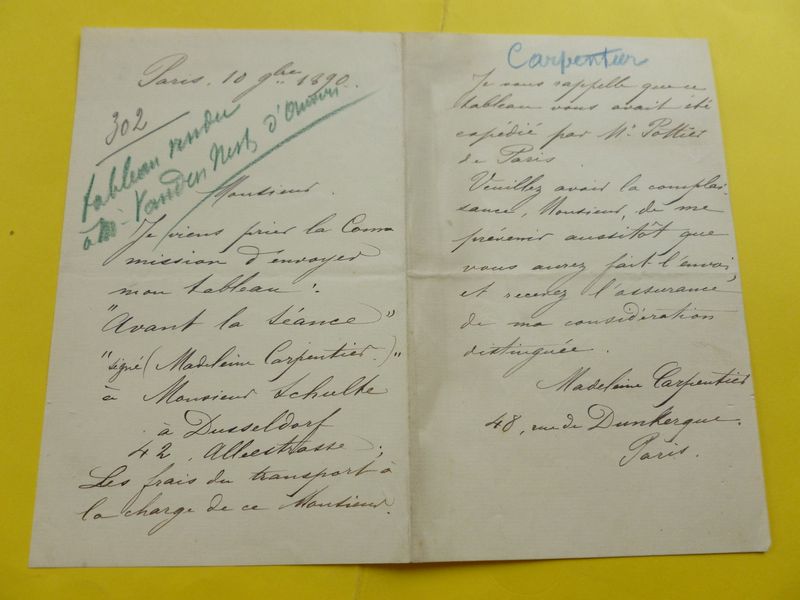 Paris. 10 9bre 1890.
302
tableau vendu
à Mr Vanden Nest d'Anvers
Monsieur.
Je viens prier la Com
mission d'envoyer
mon tableau :
"Avant la Séance"
"signé (Madeleine Carpentier.)"
à Monsieur Schulte
à Dusseldorf
42, Alleestrasse ;
Les frais du transport à
la charge de ce Monsieur.
Carpentier
Je vous rappelle que ce
tableau vous avait été
expédié par Mr Pottier
de Paris
Veuillez avoir la complai-
sance, Monsieur, de me
prévenir aussitôt que
vous aurez fait l'envoi,
et recevez l'assurance
de ma considération
distinguée.
Madeleine Carpentier
48, rue de Dunkerque.
Paris.